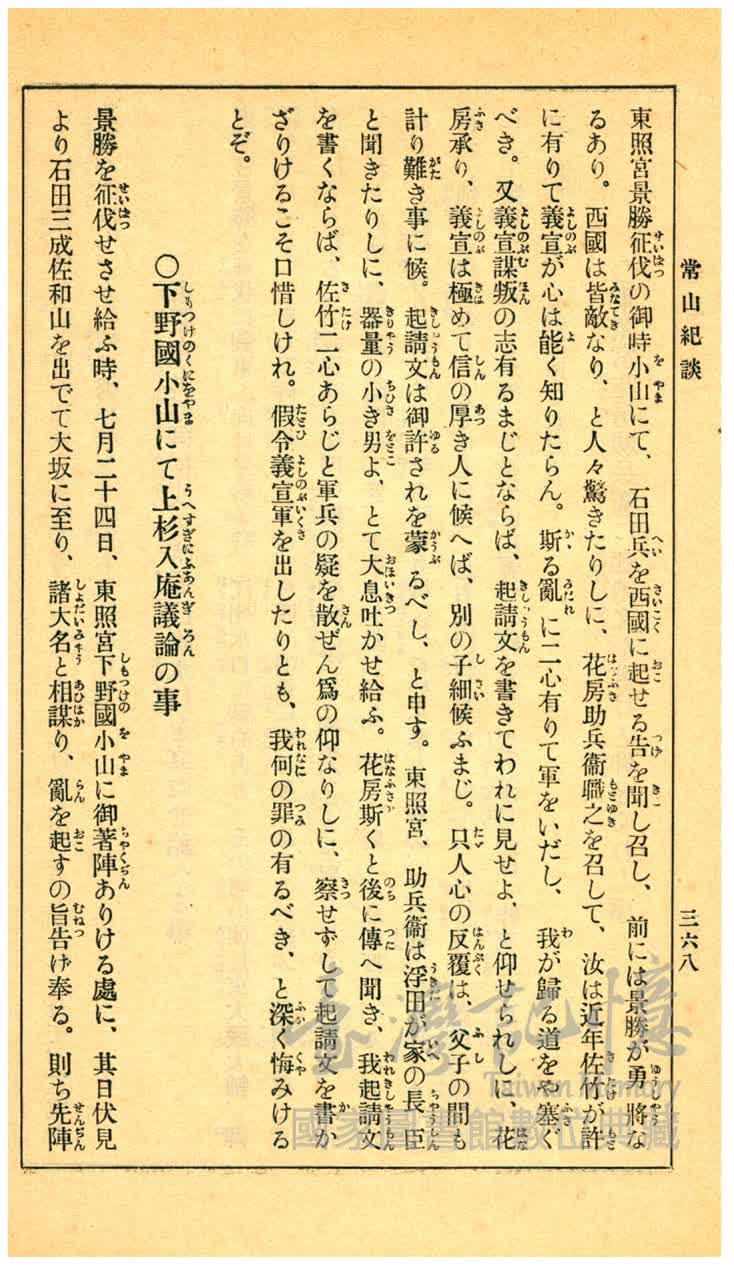 常山紀談
三六八
東照宮景勝征伐の御時小山にて、石田兵を西國に起せる告を聞し召し、前には景勝が勇將な
るあり。西國は皆敵なり、と人々驚きたりしに、花房助兵衞職之を召して、汝は近年佐竹が許
に有りて義宣が心は能く知りたらん。斯る亂に二心有りて軍をいだし、我が歸る道をや塞ぐ
べき。又義宣謀叛の志有るまじとならば、起請文を書きてわれに見せよ、と仰せられしに、花
房承り、義宣は極めて信の厚き人に候へば、別の子細候ふまじ。只人心の反覆は、父子の間も
計り難き事に候。起請文は御許されを蒙るべし、と申す。東照宮、助兵衞は浮田が家の長臣
と聞きたりしに、器量の小き男よ、とて大息吐かせ給ふ。花房斯くと後に傳へ聞き、我起請文
を書くならば、佐竹二心あらじと軍兵の疑を散ぜん爲の仰なりしに、察せずして起請文を書か
ざりけるこそ口惜しけれ。假令義宣軍を出したりとも、我何の罪の有るべき、と深く悔みける
とぞ。
〇下野國小山にて上杉入庵議論の事
景勝を征伐せさせ給ふ時、七月二十四日、東照宮下野國小山に御著陣ありける處に、其日伏見
より石田三成佐和山を出でて大坂に至り、諸大名と相謀り、亂を起すの旨告げ奉る。則ち先陣
臺灣記憶
Taiwan Memory
國家圖書館數位典藏